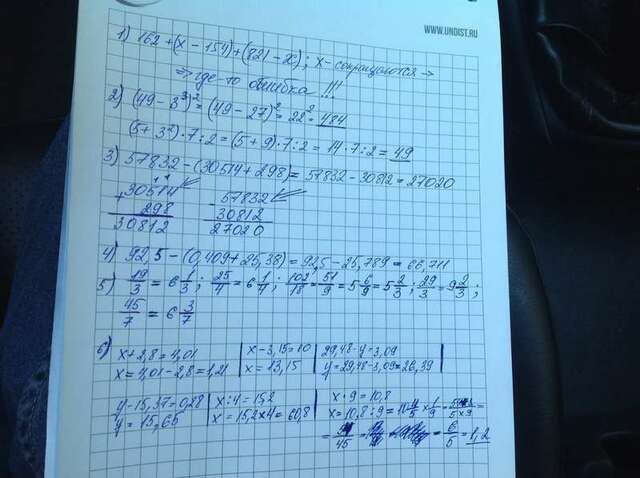 WWW.UNDIST.RU
1) 162 + (x - 154) + (821 - x); x - сокращаются →
⇒ где-то ошибка!!!
2) (49 - 3³)² = (49 - 27)² = 22² = 484
(5 + 3²) · 7 : 2 = (5 + 9) · 7 : 2 = 14 · 7 : 2 = 49
3) 57832 - (30514 + 298) = 57832 - 30812 = 27020
+ 30514 - 57832
298 30812
30812 27020
4) 92,5 - (0,409 + 25,38) = 92,5 - 25,789 = 66,711
5) 19/3 = 6 1/3; 25/4 = 6 1/4; 102/18 = 51/9 = 5 6/9 = 5 2/3; 29/3 = 9 2/3;
45/7 = 6 3/7
6) x + 2,8 = 4,01 | x - 3,15 = 10 | 29,48 - y = 3,09
x = 4,01 - 2,8 = 1,21 | x = 13,15 | y = 29,48 - 3,09 = 26,39
y - 15,37 = 0,28 | x : 4 = 15,2 | x · 9 = 10,8
y = 15,65 | x = 15,2 x 4 = 60,8 | x = 10,8 : 9 = 10 4/5 x 1/9 =
= 6/5 = 1,2